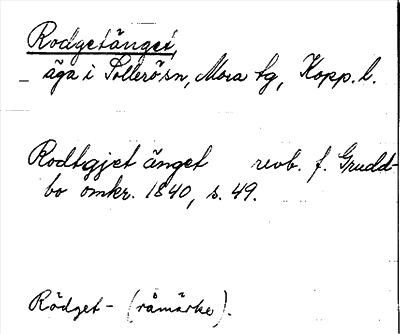 Rodgetänget,
äga i Sollerösn, Mora tg, Kopp. l.
Rodtgjet änget revb. f. Grudd-
bo omkr. 1840, s. 49.
Rödget- (råmärke).